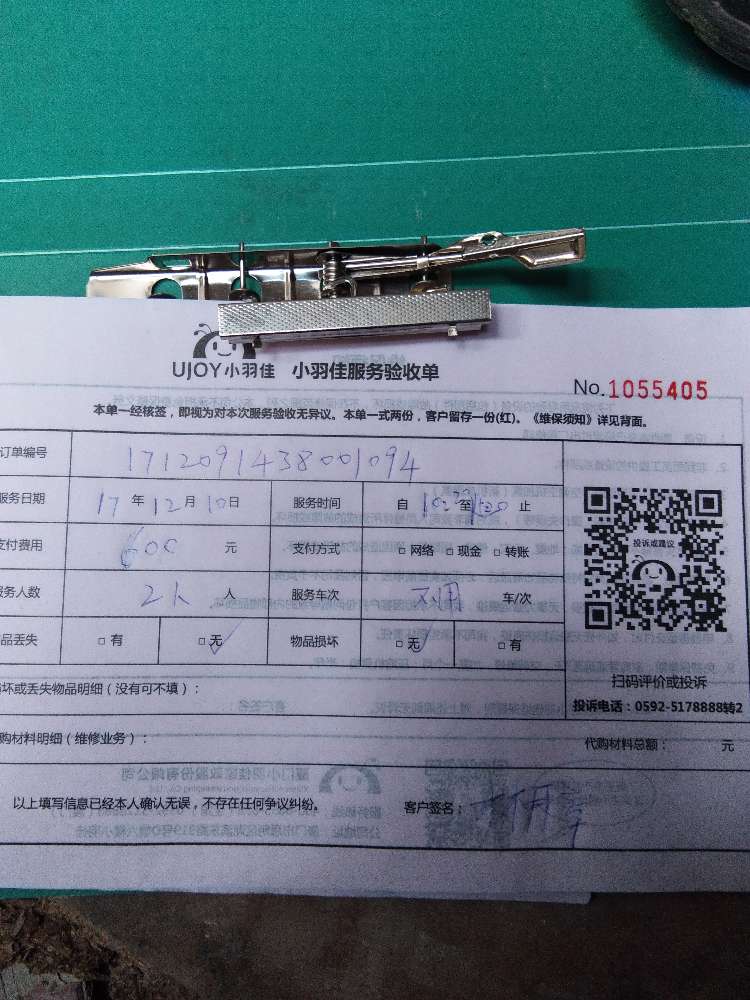 UJOY小羽佳 小羽佳服务验收单
No.1055405
本单一经核签，即视为对本次服务验收无异议。本单一式两份，客户留存一份(红)。《维保须知》详见背面。
订单编号 1712091438001094
服务日期 17 年 12 月 10 日 服务时间 自 至 止
支付费用 600 元 支付方式 □ 网络 □ 现金 □ 转账
服务人数 2人 人 服务车次 不用 车/次
品丢失 □ 有 □ 无 物品损坏 □ 无 □ 有
投诉或建议
扫码评价或投诉
投诉电话：0592-5178888转2
坏或丢失物品明细（没有可不填）：
购材料明细（维修业务）： 代购材料总额： 元
以上填写信息已经本人确认无误，不存在任何争议纠纷。 客户签名：